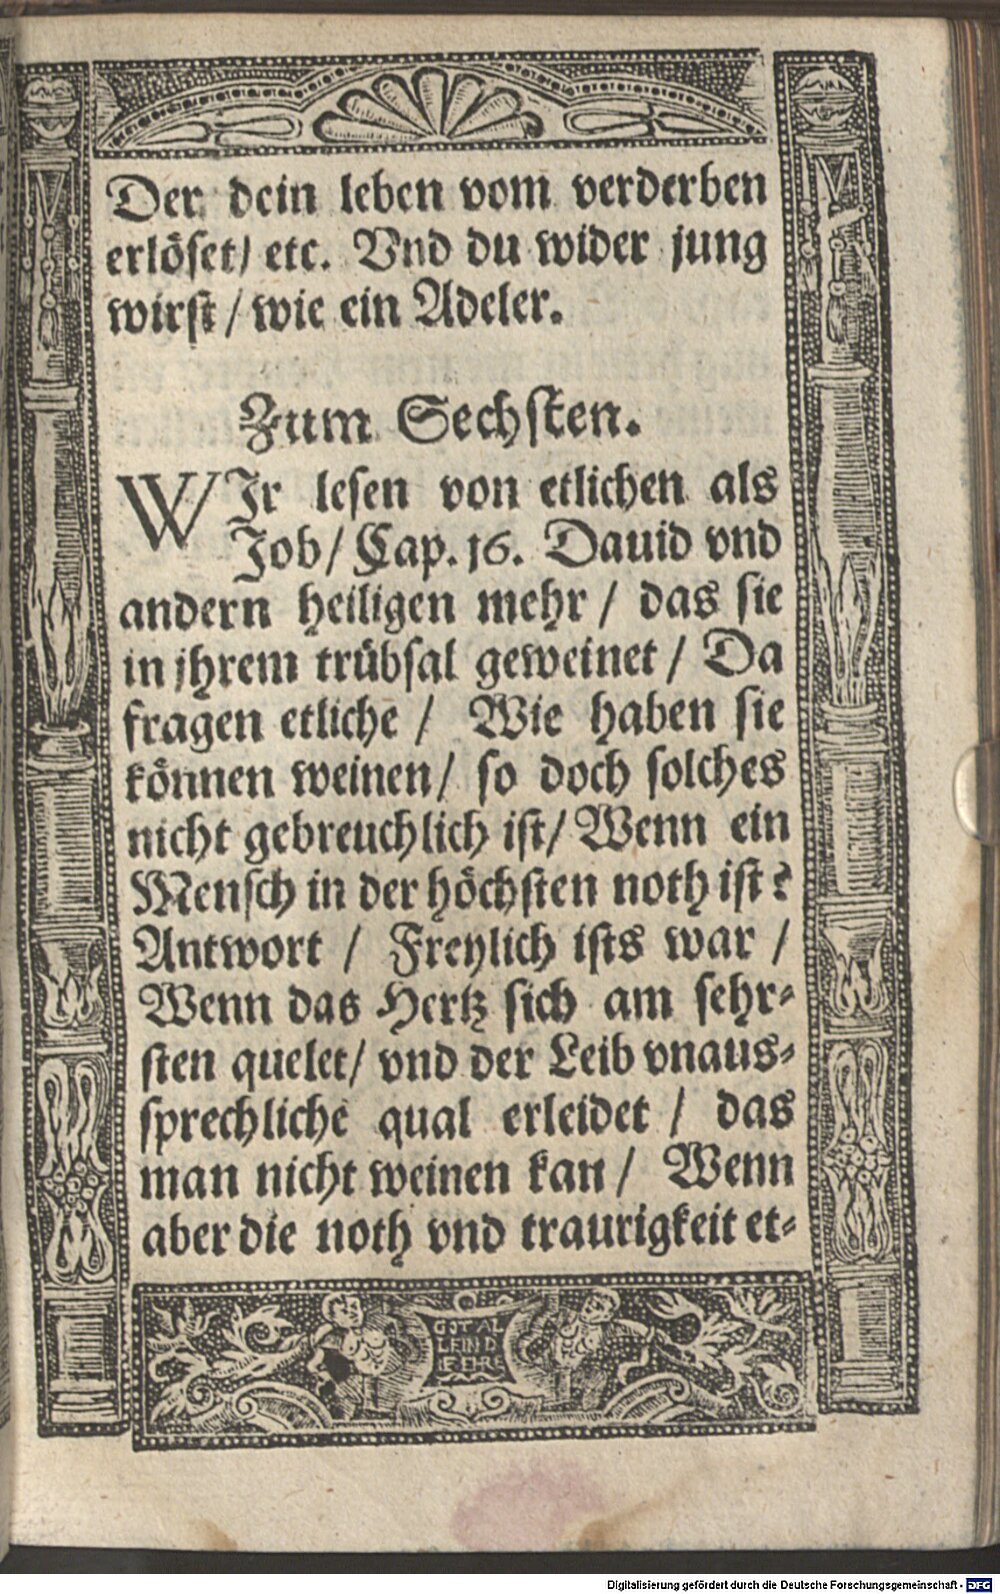 Der dein leben vom verderben
erlöset/ etc. Vnd du wider jung
wirst / wie ein Adeler.
Zum Sechsten.
WIr lesen von etlichen als
Job/ Cap. 16. Dauid vnd
andern heiligen mehr / das sie
in jhrem trübsal geweinet / Da
fragen etliche / Wie haben sie
können weinen/ so doch solches
nicht gebreuchlich ist/ Wenn ein
Mensch in der höchsten noth ist?
Antwort / Freylich ists war /
Wenn das Hertz sich am sehr-
sten quelet/ vnd der Leib vnaus-
sprechliche qual erleidet / das
man nicht weinen kan / Wenn
aber die noth vnd traurigkeit et-
GOT AL
LEIN D
EER
Digitalisierung gefördert durch die Deutsche Forschungsgemeinschaft - DFG